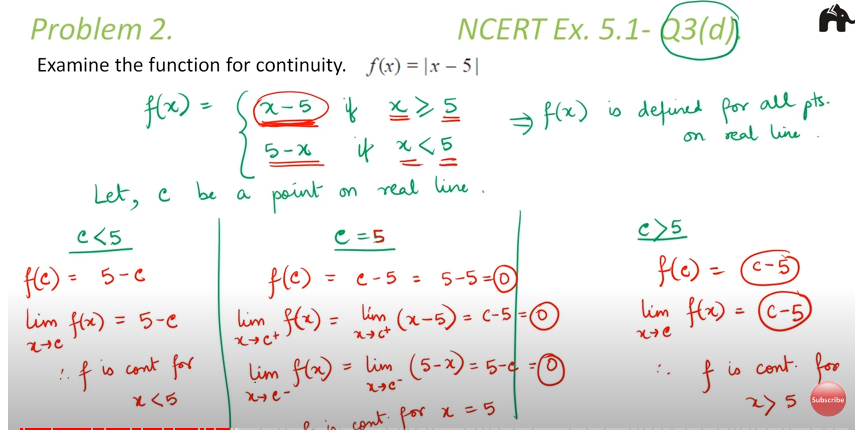 Problem 2.
NCERT Ex. 5.1- Q3(d).
Examine the function for continuity. f(x) = |x – 5|
f(x) = { x-5 if x ⩾ 5
5-x if x < 5
⇒ f(x) is defined for all pts.
on real line.
Let, c be a point on real line.
c<5
f(c) = 5-c
lim x→c f(x) = 5-c
∴ f is cont for
x<5
c = 5
f(c) = c-5 = 5-5 = 0
lim x→c+ f(x) = lim x→c+ (x-5) = c-5 = 0
lim x→c- f(x) = lim x→c- (5-x) = 5-c = 0
is cont. for x = 5
c>5
f(c) = c-5
lim x→c f(x) = c-5
∴ f is cont. for
x > 5
Subscribe